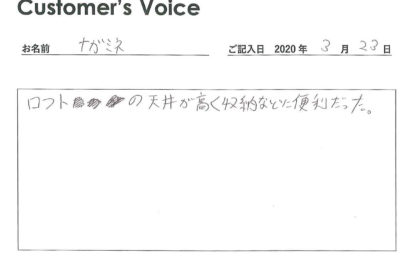 Customer's Voice
お名前 ナガミネ ご記入日 2020 年 3 月 23 日
ロフト の天井が高く収納などに便利だった。